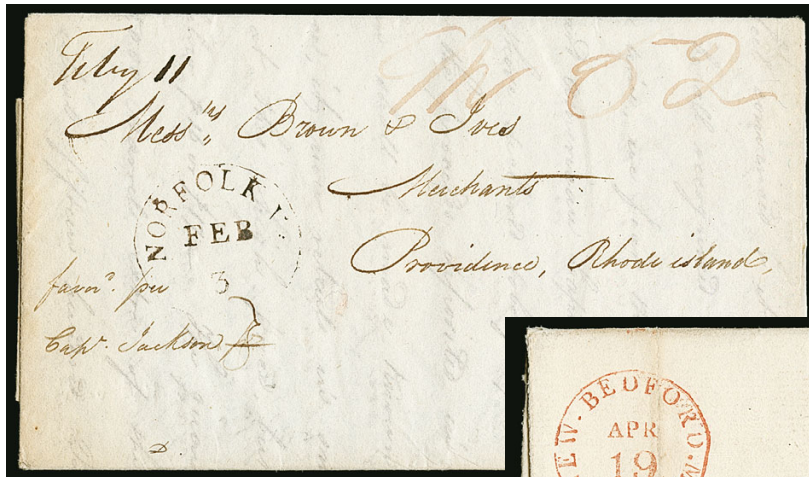 Feby 11
Mess.rs Brown & Ives
Merchants
Providence, Rhode island,
NORFOLK V
FEB
3
favd. per
Capt. Jackson
52
EW. BEDFORD. M
APR
19